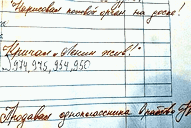 Нарисовал половой орган на доске!
Кричал "Ленин жив!"
974, 975, 954, 950
Продавал одноклассника в рабство